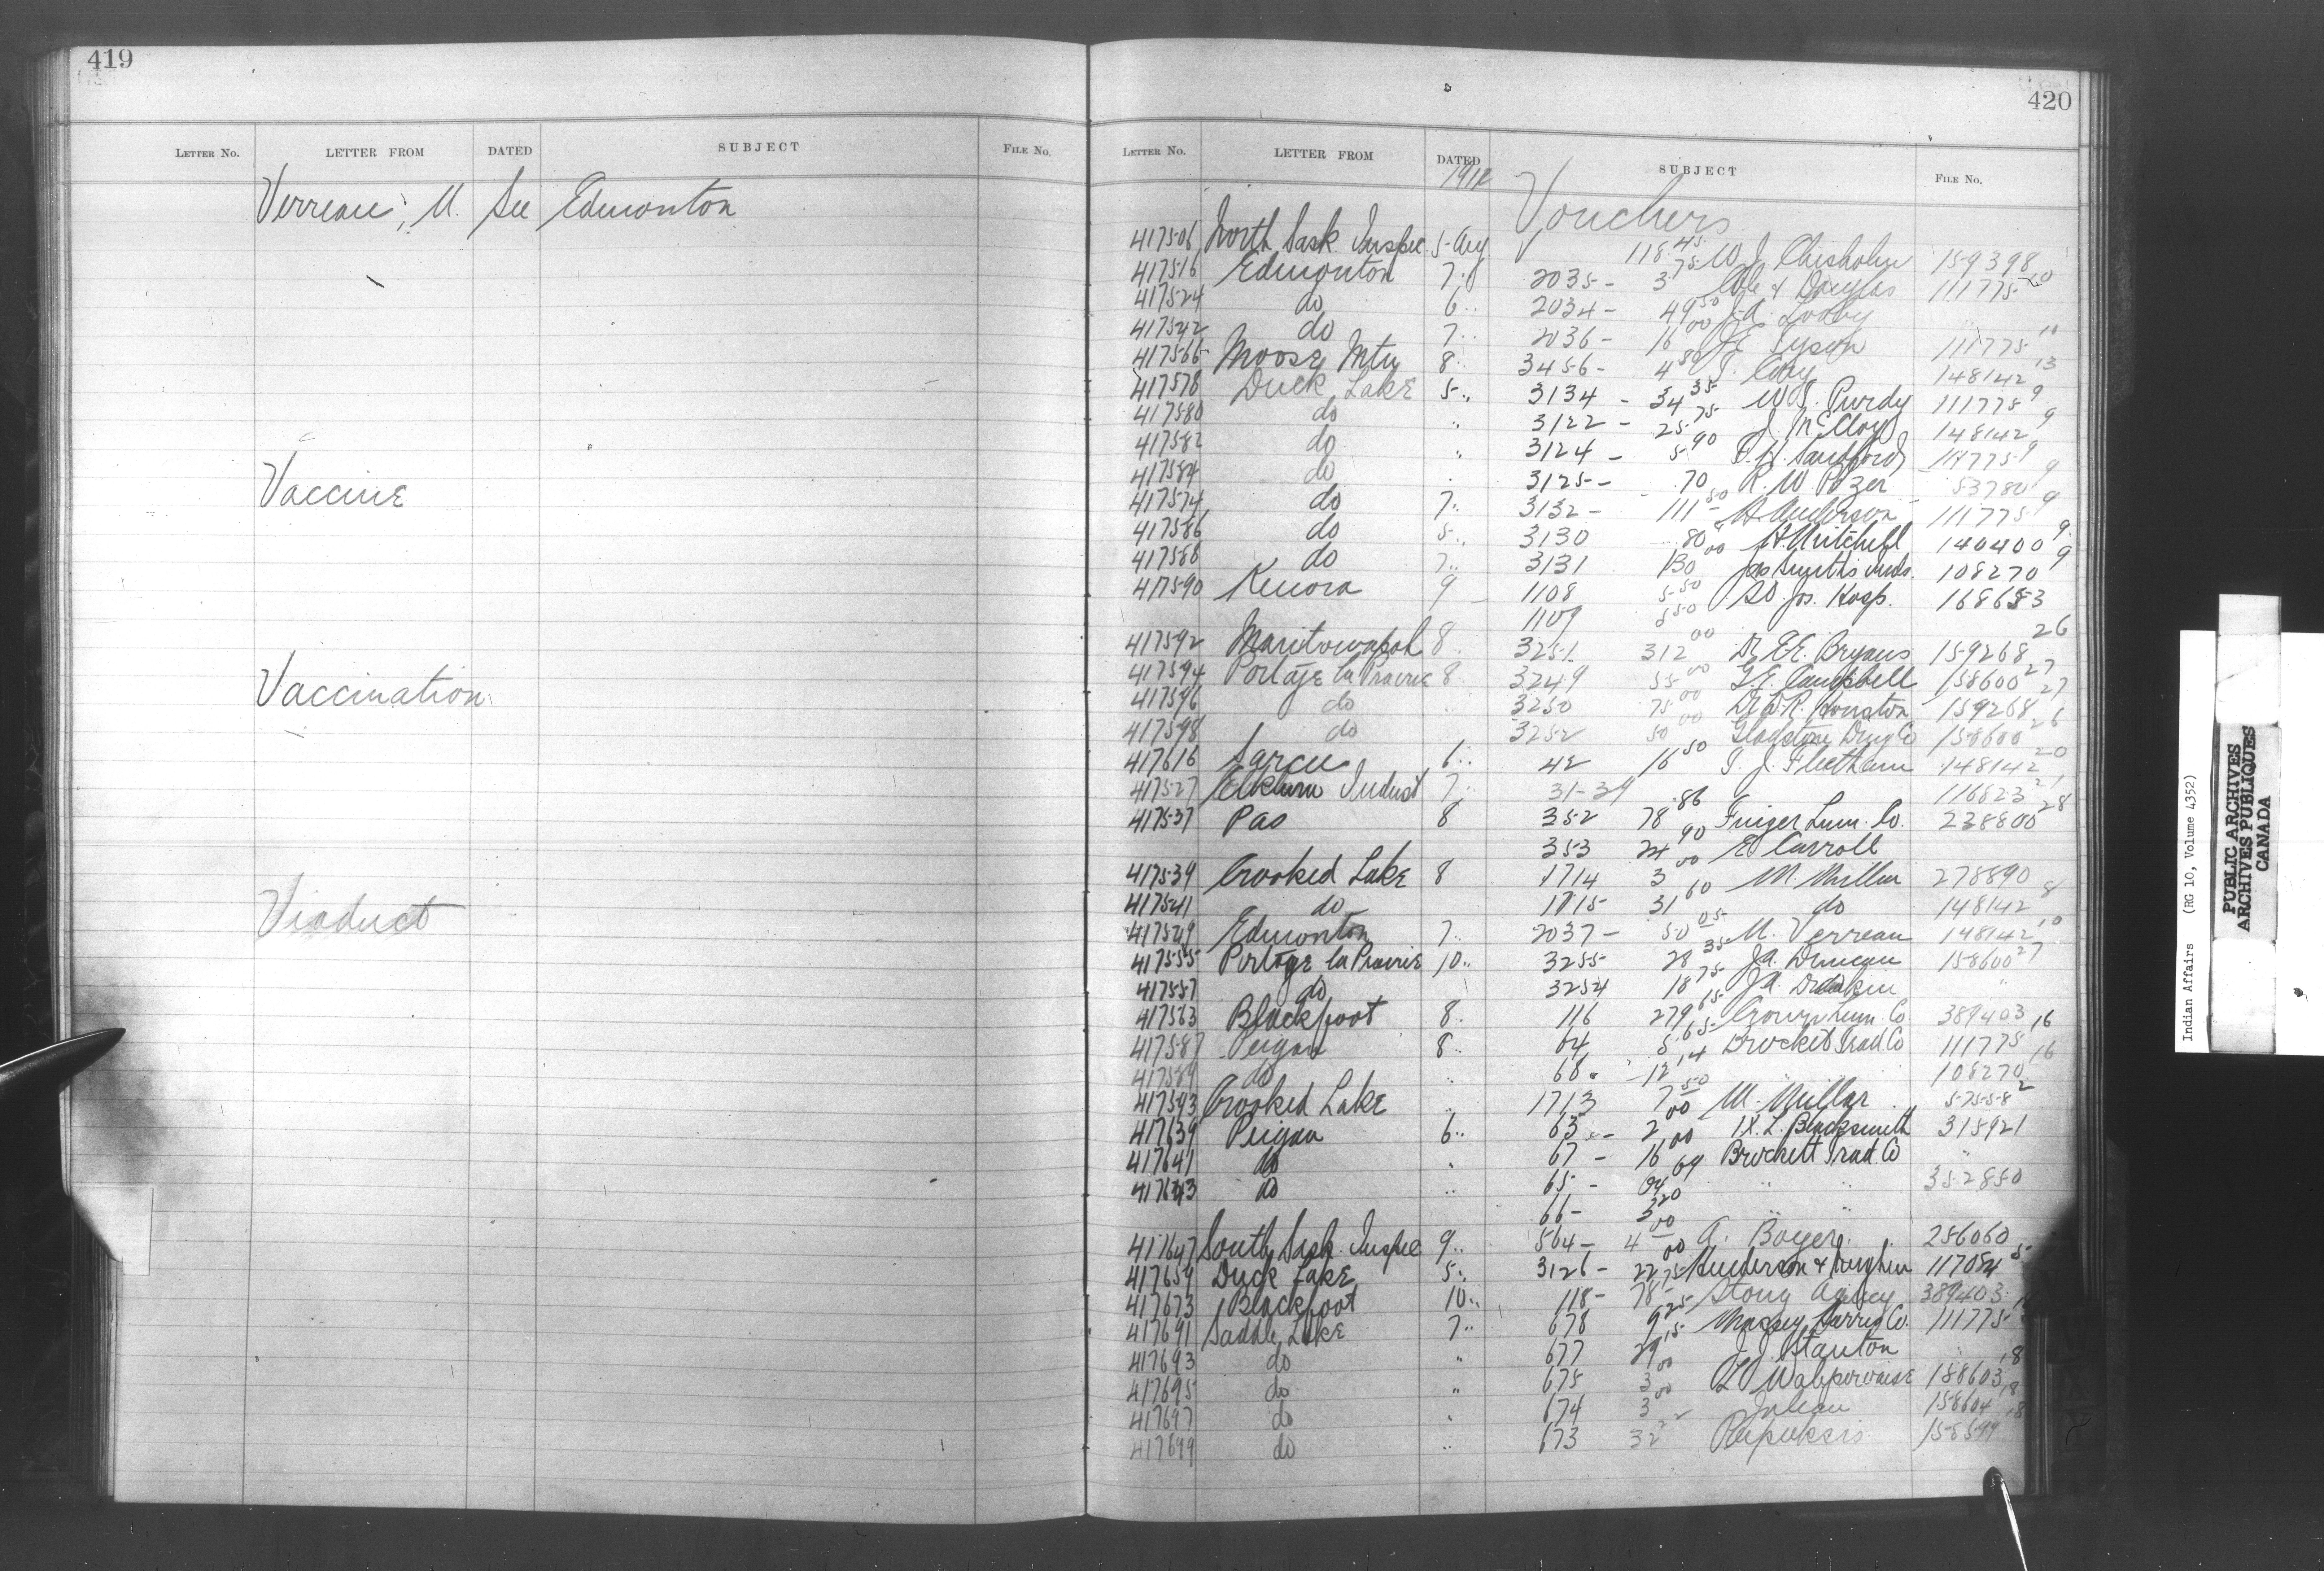 419
LETTER NO. LETTER FROM DATED SUBJECT FILE NO.
Verreau, M. See Edmonton
Vaccine
Vaccination
Viaduct
420
LETTER NO. LETTER FROM DATED SUBJECT FILE NO.
1912
Vouchers
417506 North Sask. Inspec 5- Aug 118.45 W. J. Chisholm 159398
417516 Edmonton 7 2035- 3 75 & Douglas 111775 20
417524 do 6 2034- 49 50 J.A.
417542 do 7 2036- 16 00 Tyson 111775 10
417566 Moose Mtn 8 3456- 4 80 148142 13
417578 Duck Lake 5 3134 - 34 35 W.S. Purdy 111775 9
417580 do " 3122 - 25 75 J. McCloy 148142 9
417582 do " 3124 - 5 90 111775 9
417584 do 3125- .70 R. W. 53780 9
417574 do 7 3132- 111 50 Anderson 111775 9
417586 do 5 3130 .80 Mitchell 140400 9
417588 do 7 3131 130 00 Jas Smith's Inds. 108270 9
417590 Kenora 9 1108 5 50 St. Jos. Hosp. 168683
1109 5 50
417592 Manitowapah 8 3251 312 00 Dr. Bryans 159268 26
417594 Portage la Prairie 8 3249 55 00 Campbell 158600 27
417596 do 3250 75 00 Dr. Houston 159268 27
417598 do 3252 50 00 Gladstone Drug Co 158600 26
417616 Sarcee 6 42 16 50 T. J. Fleetham 148142 20
417527 Elkhorn Indust 7 31-39 116823 21
417537 Pas 8 352 78 86 Finger Lum. Co. 238800 28
353 24 90 E Carroll
417539 Crooked Lake 8 1714 3 00 M. Millar 278890
417541 do 1715 31 60 do 148142 8
417549 Edmonton 7 2037- 50 05 M. Verreau 148142 10
417555 Portage la Prairie 10 3255 28 35 Ja. Duncan 158600 27
417557 do 3254 18 75 J.A. "
417563 Blackfoot 8 116 279 65 Crown Lum. Co. 389403
417587 Peigan 8 64 5 65 Brocket Trad. Co 111775 16
417589 do " 68 12 14 108270 16
417593 Crooked Lake " 1713 7 50 M. Millar 57558 2
417639 Peigan 6 63 - 2 00 I.X.L. Blacksmith 315921
417641 do " 67 - 16 00 Brockett Trad. Co "
417643 do " 65 - 64 69 " " 352850
66- 3 20 "
417647 South Sask. Inspec 9 564- 4 00 A. Boyer 256060
417659 Duck Lake 5 3126- 22 00 Henderson & 117084 5
417673 Blackfoot 10 118- 78 75 Stony Agency 389403
417691 Saddle Lake 7 678 9 25 Massey Harris Co. 111775
417693 do " 677 29 15 J. J. Stanton " 18
417695 do " 675 3 00 158603 18
417697 do " 674 3 00 Julian 158604 18
417699 do " 673 32 22 158599
Indian Affairs (RG 10, Volume 4352)
PUBLIC ARCHIVES
ARCHIVES PUBLIQUES
CANADA